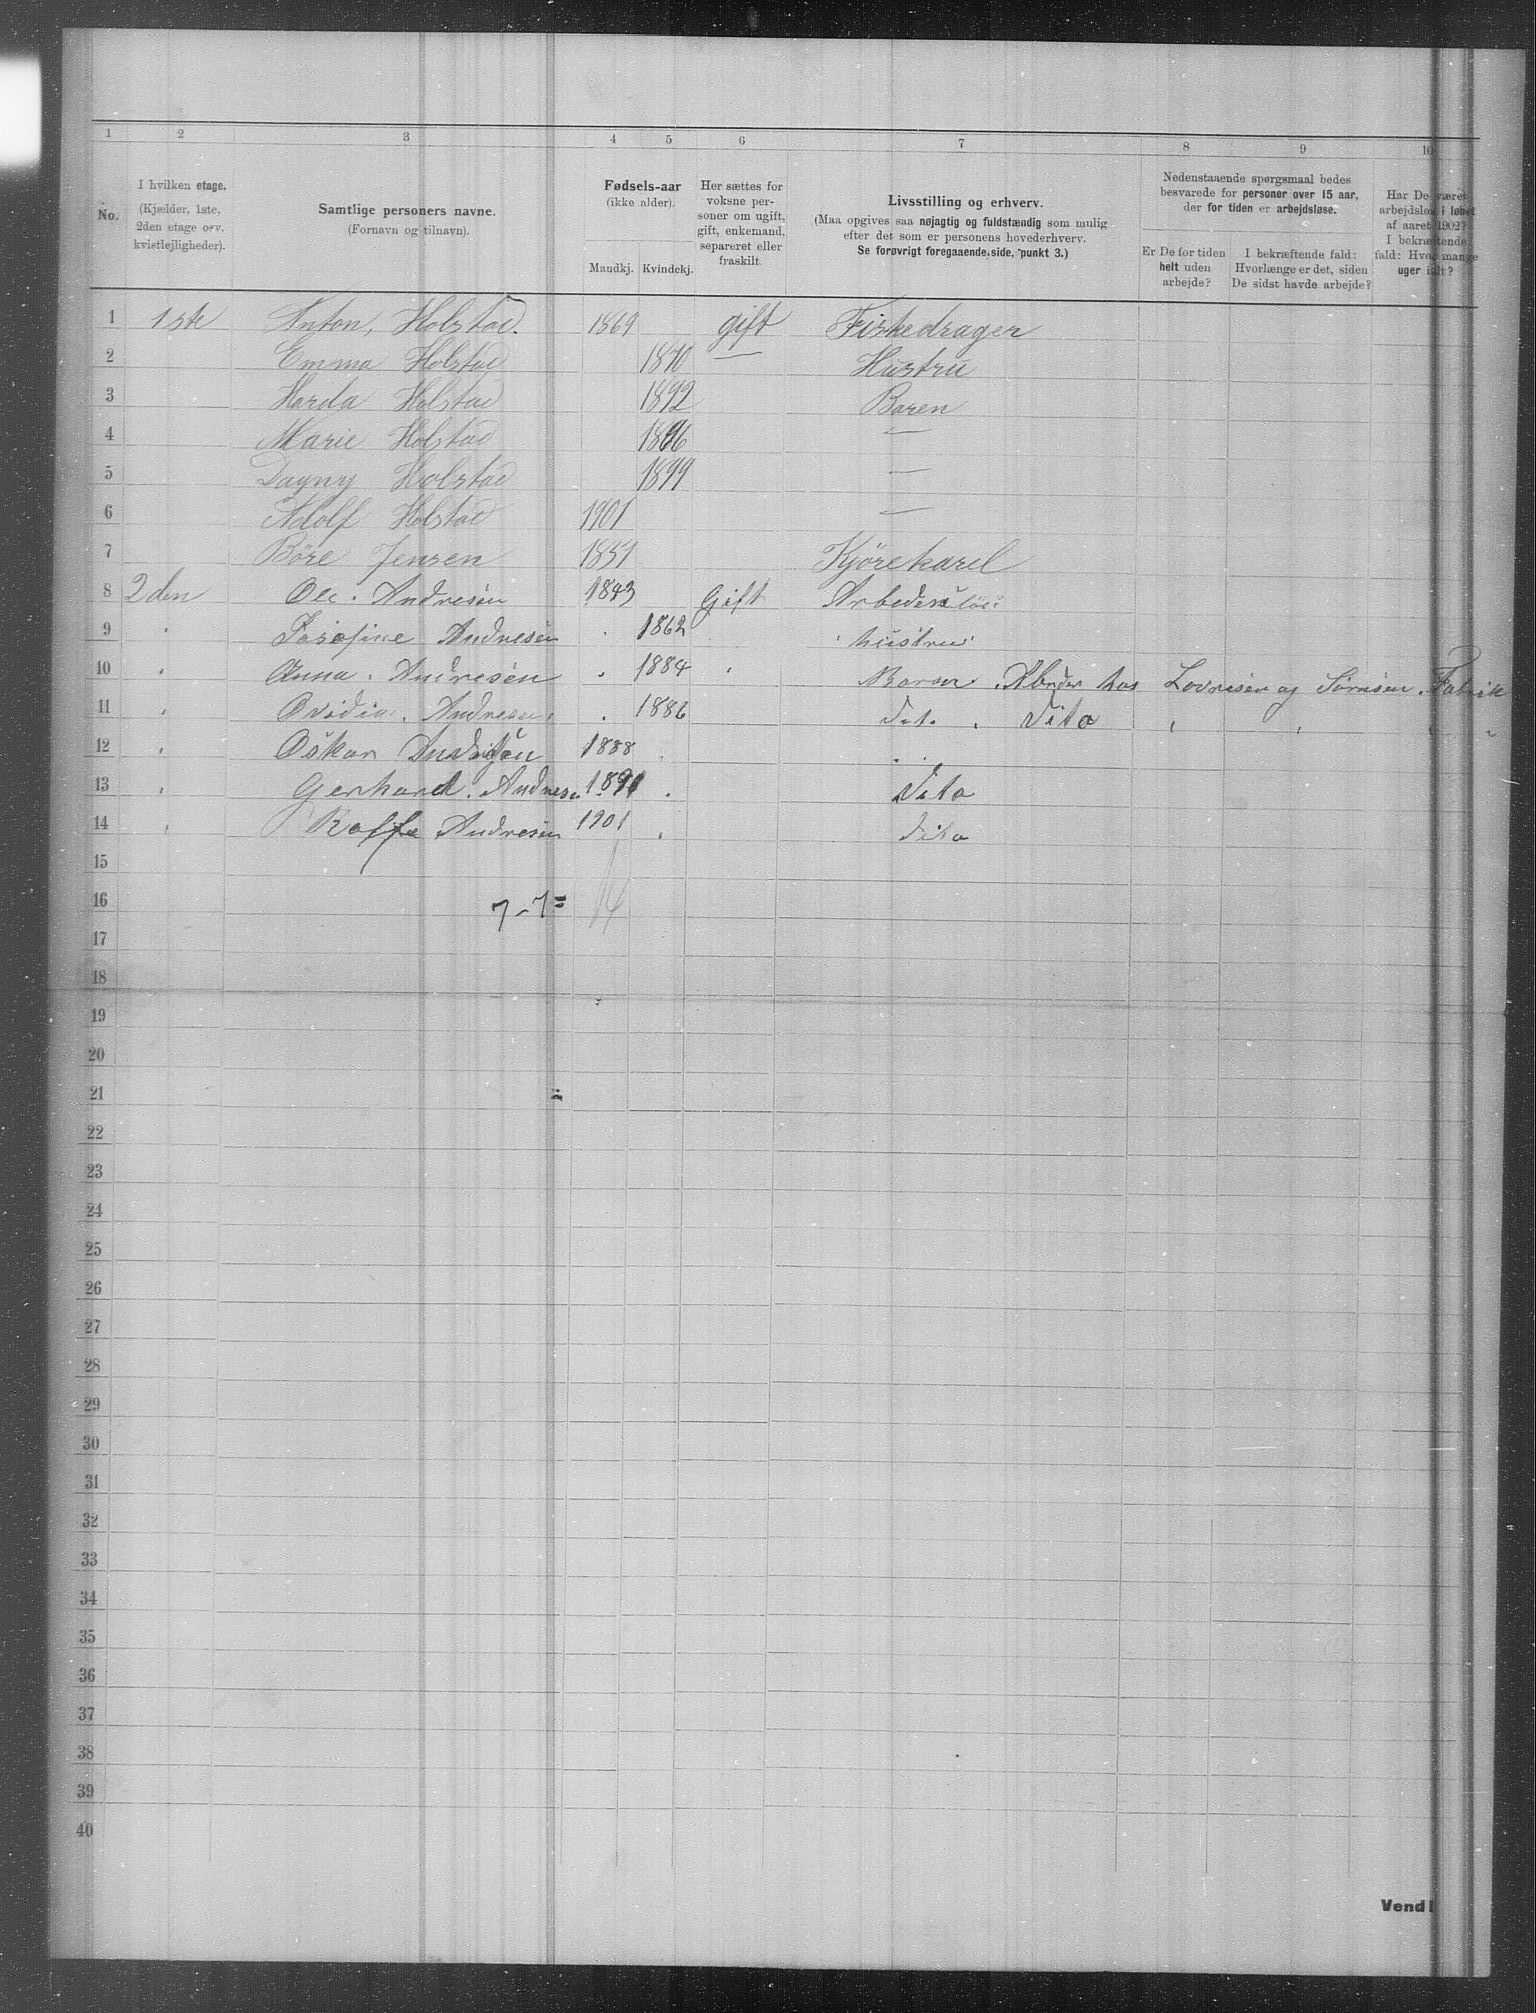 1 2 3 4 5 6 7 8 9 10
No.
I hvilken etage.
(Kjælder, 1ste, 2den etage osv. kvistlejligheder).
Samtlige personers navne.
(Fornavn og tilnavn).
Fødsels-aar
(ikke alder).
Mandkj. Kvindekj.
Her sættes for voksne personer om ugift, gift, enkemand, separeret eller fraskilt.
Livsstilling og erhverv.
(Maa opgives saa nøjagtig og fuldstændig som mulig
efter det som er personens hovederhverv.
Se forøvrigt foregaaende side, punkt 3.)
Nedenstaaende spørgsmaal bedes
besvarede for personer over 15 aar,
der for tiden er arbejdsløse.
Er De for tiden helt uden arbejde?
I bekræftende fald: Hvorlænge er det, siden De sidst havde arbejde?
Har De været arbejdsløs i løbet af aaret 1902? I bekræftende fald: Hvor mange uger ialt?
1 1ste Anton, Holstad. 1869 gift Fiskedrager
2 Emma Holstad 1870 — Hustru
3 Harda Holstad 1892 Baren
4 Marie Holstad 1896 —
5 Dagny Holstad 1899 —
6 Adolf Holstad 1901 —
7 Böre Jensen 1851 Kjörekarel
8 2den Ole. Andresen 1843 Gift
9 " Josefine Andresen 1862 hustru
10 " Anna. Andresen 1884 " Barn. Abeder hos Lovresen og Sörnsen. Fabrik
11 " Andresen 1886 Dit. Dito " " "
12 " Oskar Andresen 1888
13 " Gerhard. Andresen 1891 Dito
14 " Andresen 1901 Dito
15
16 7-7= 14
17
18
19
20
21
22
23
24
25
26
27
28
29
30
31
32
33
34
35
36
37
38
39
40
Vend!